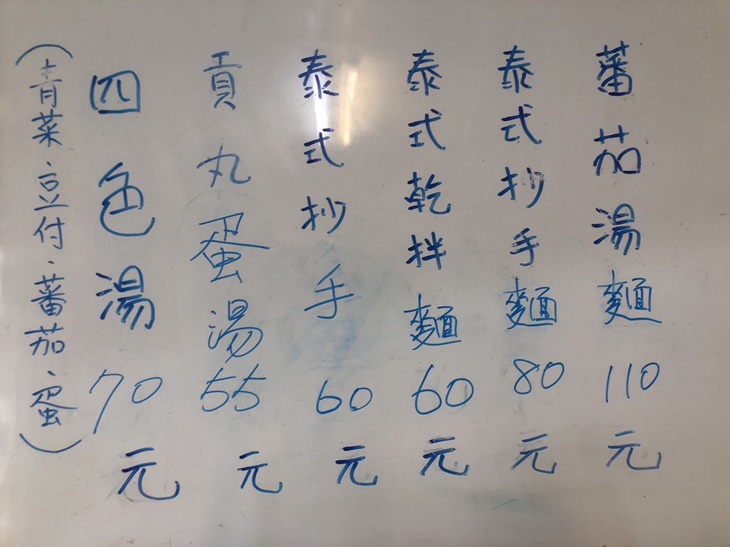 蕃茄湯麵110元
泰式抄手麵80元
泰式乾拌麵60元
泰式抄手60元
貢丸蛋湯55元
四色湯70元
(青菜、豆付、蕃茄、蛋)